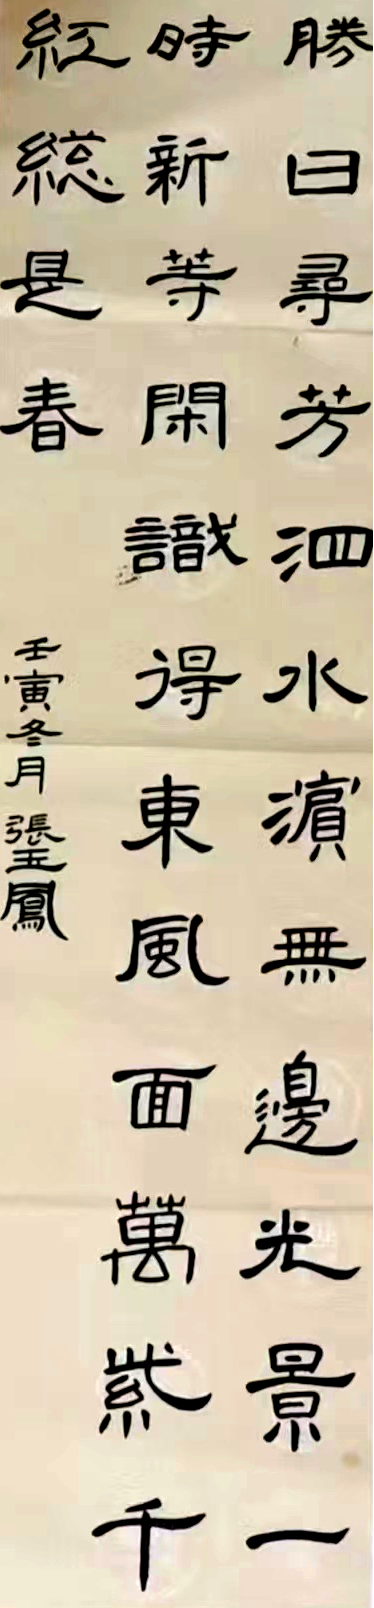 勝日尋芳泗水濱無邊光景一
時新等閑識得東風面萬紫千
紅總是春
壬寅冬月張玉鳳